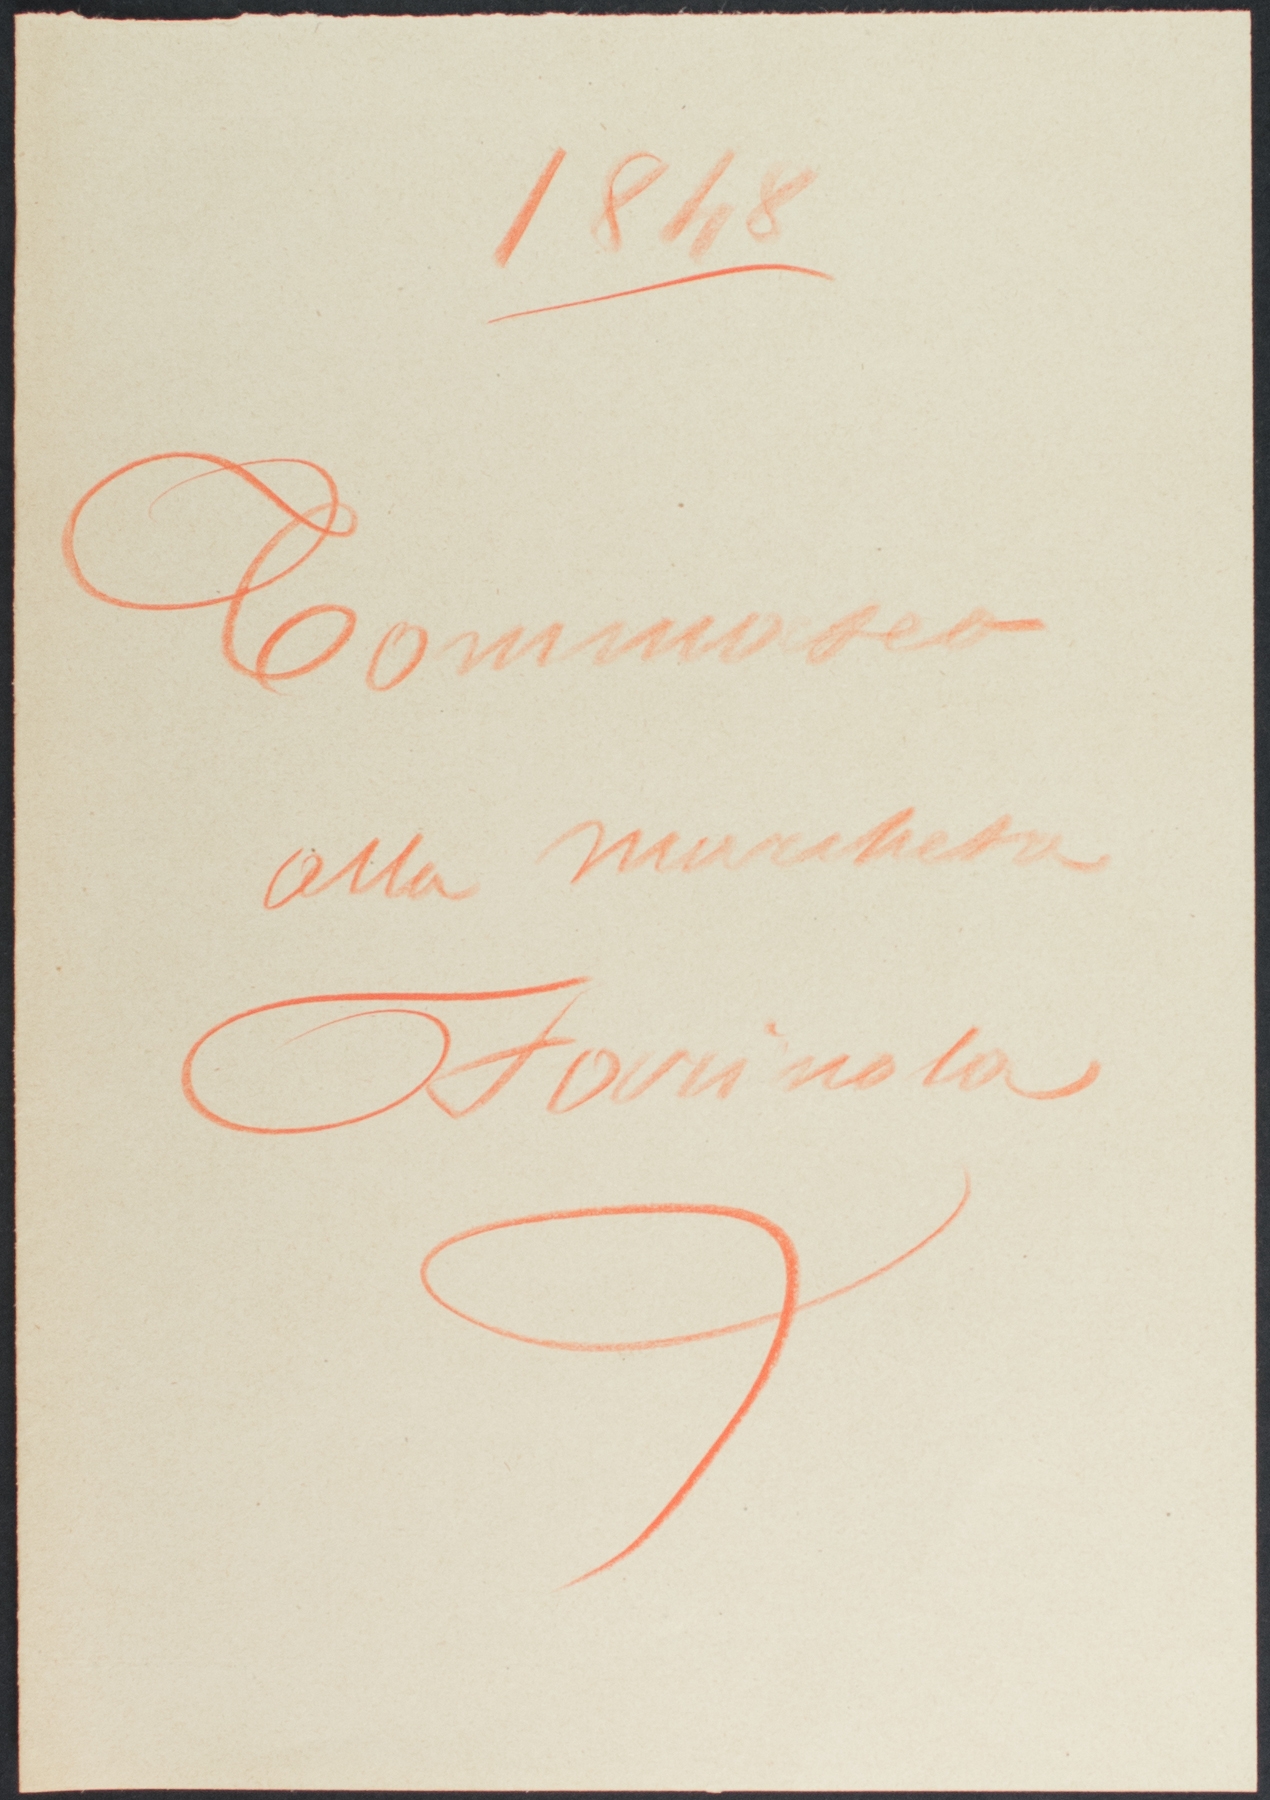 1848
Tommaseo
alla marchesa
Farinola